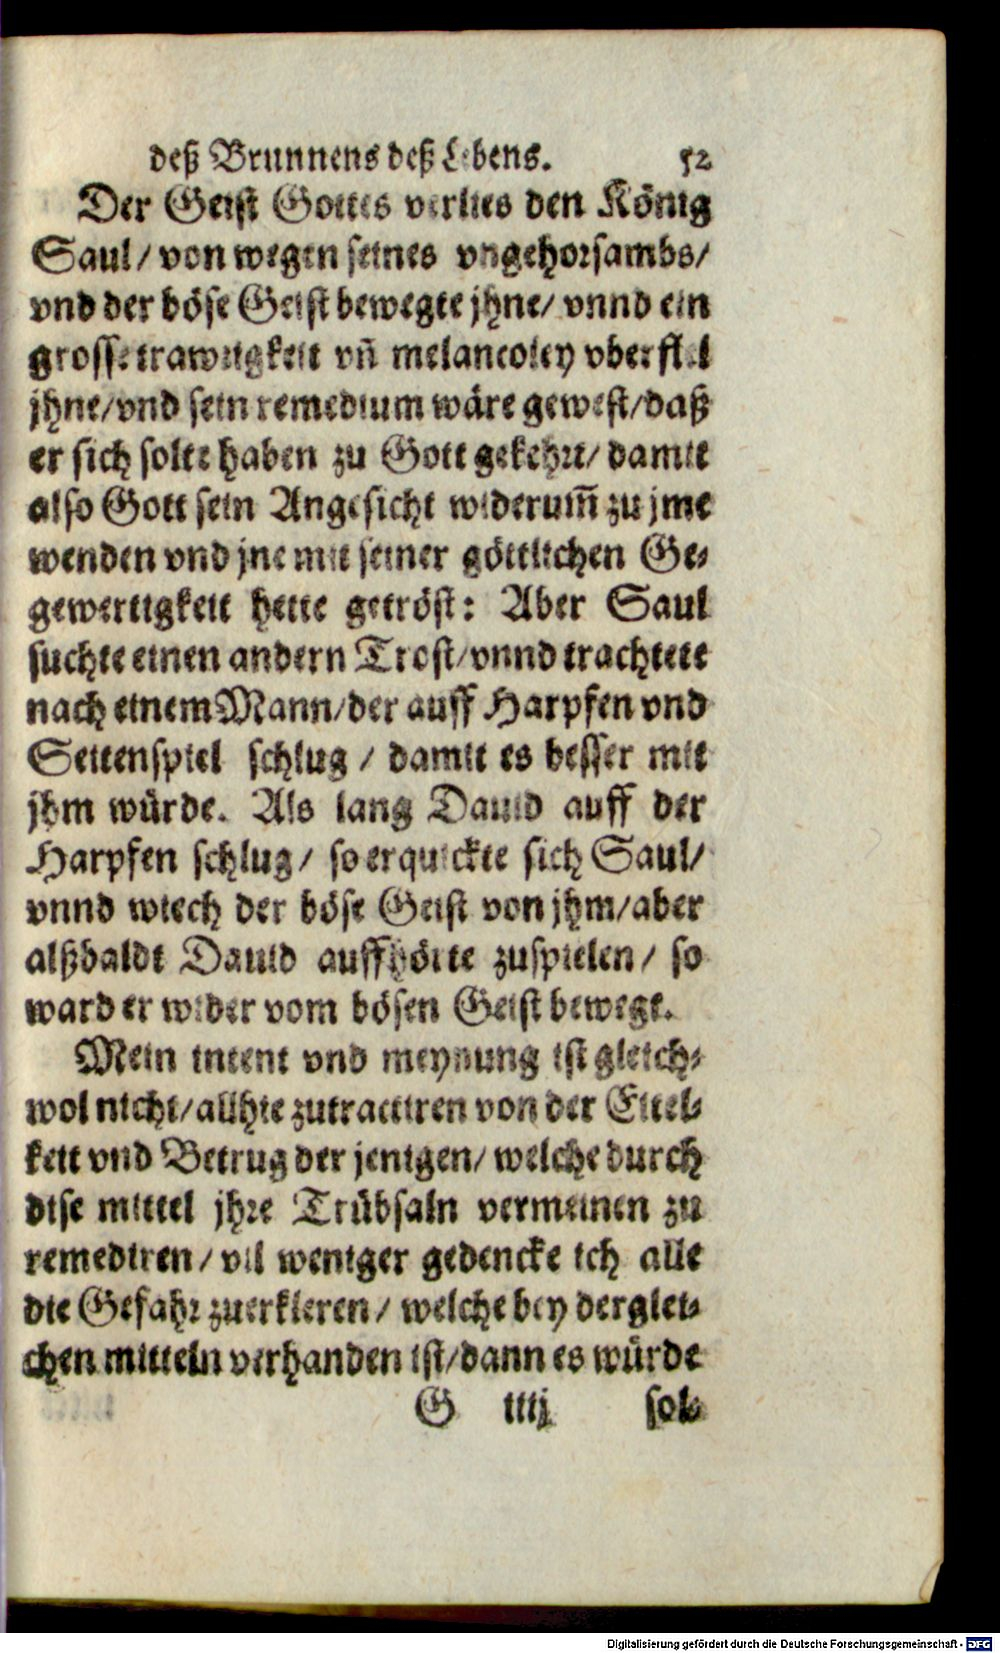 deß Brunnens deß Lebens. 52
Der Geist Gottes verlies den König
Saul/ von wegen seines vngehorsambs/
vnd der böse Geist bewegte jhne/ vnnd ein
grosse trawrigkeit vñ melancoley vberfiel
jhne/vnd sein remedium wäre gewest/daß
er sich solte haben zu Gott gekehrt/ damit
also Gott sein Angesicht widerum̃ zu jme
wenden vnd jne mit seiner göttlichen Ge⸗
gewertigkeit hette getröst: Aber Saul
suchte einen andern Trost/vnnd trachtete
nach einem Mann/der auff Harpfen vnd
Seitenspiel schlug / damit es besser mit
jhm würde. Als lang Dauid auff der
Harpfen schlug/ so erquickte sich Saul/
vnnd wiech der böse Geist von jhm/aber
alßbaldt Dauid auffhörte zuspielen/ so
ward er wider vom bösen Geist bewegt.
Mein intent vnd meynung ist gleich⸗
wol nicht/allhie zutractiren von der Eitel⸗
keit vnd Betrug der jenigen/ welche durch
dise mittel jhre Trübsaln vermeinen zu
remediren/ vil weniger gedencke ich alle
die Gefahr zuerkleren/ welche bey derglei⸗
chen mitteln verhanden ist/dann es würde
G iiij sol⸗
Digitalisierung gefördert durch die Deutsche Forschungsgemeinschaft - DFG